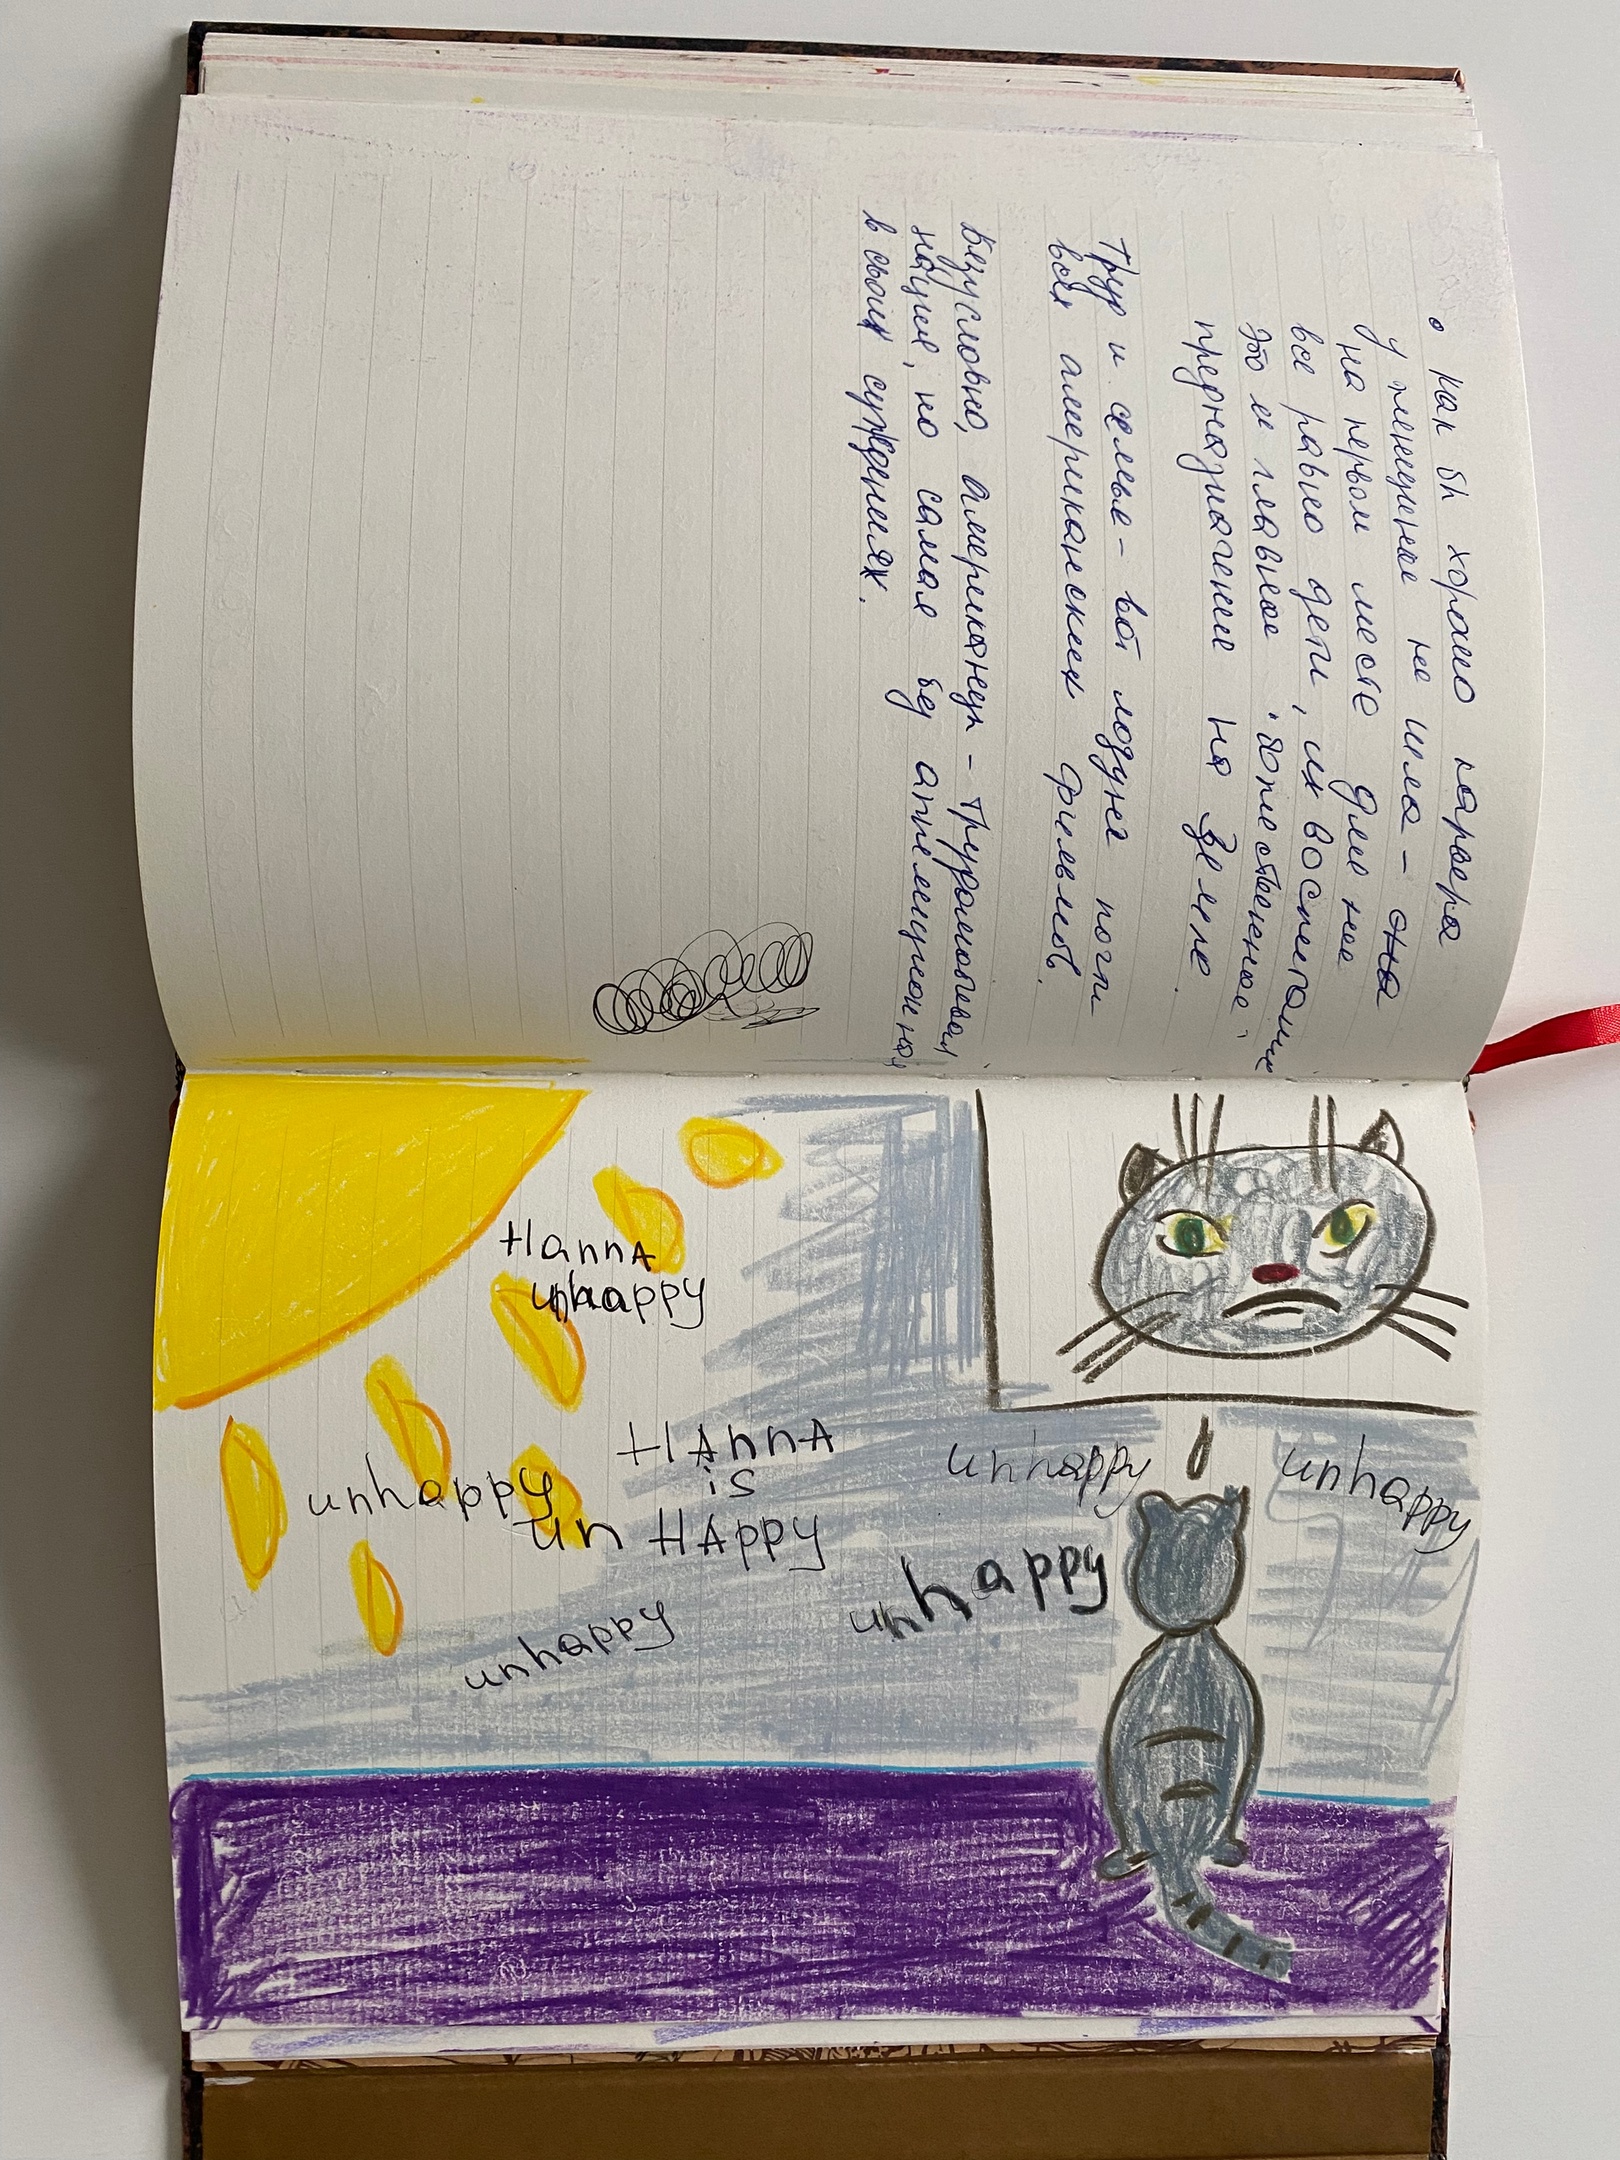 • как бы хорошо карьера
у женщины не шла – она
на первом месте для нее
все равно дети, их воспитание
это ее главное, божественное,
предназначение на Земле.
Труд и семья – вот лозунг почти
всех американских фильмов.
Безусловно, американцы – трудолюбивая
нация, но самая
в своих суждениях.
HannA
unhappy
HAnnA
is
un HAppy
unhappy
unhappy
unhappy
unhappy
unhappy